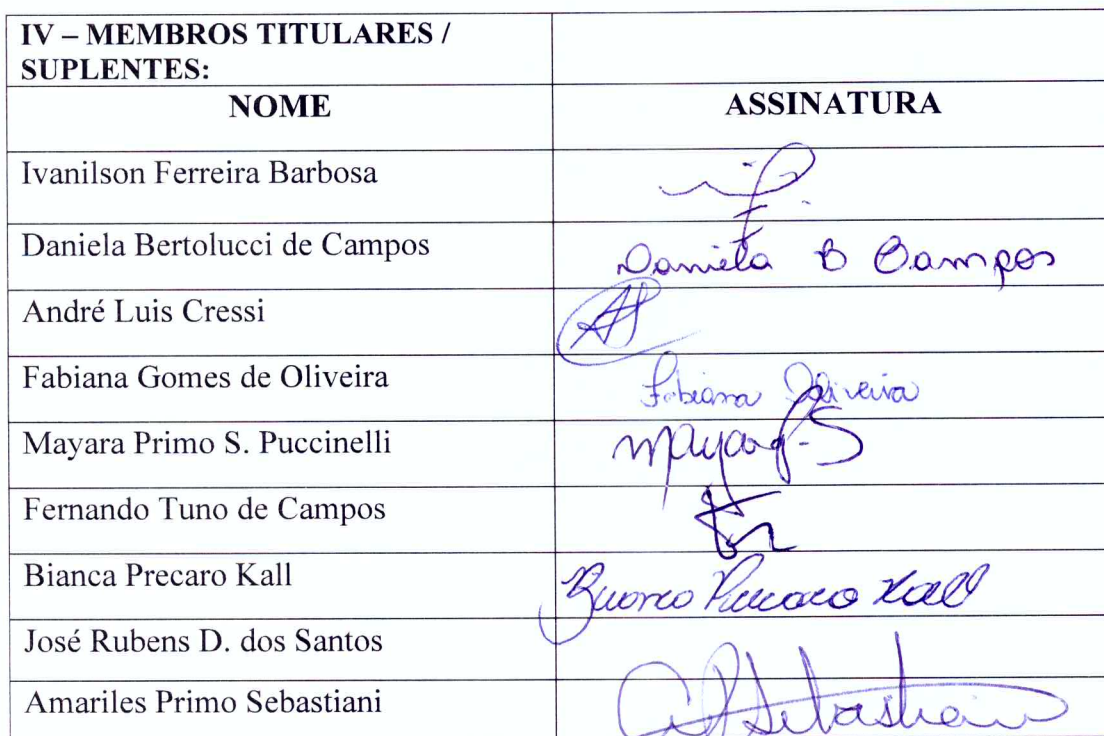 IV – MEMBROS TITULARES /
SUPLENTES:
NOME ASSINATURA
Ivanilson Ferreira Barbosa
Daniela Bertolucci de Campos Daniela B Campos
André Luis Cressi
Fabiana Gomes de Oliveira Fabiana Oliveira
Mayara Primo S. Puccinelli
Fernando Tuno de Campos
Bianca Precaro Kall Bianca Precaro Kall
José Rubens D. dos Santos
Amariles Primo Sebastiani Sebastiani